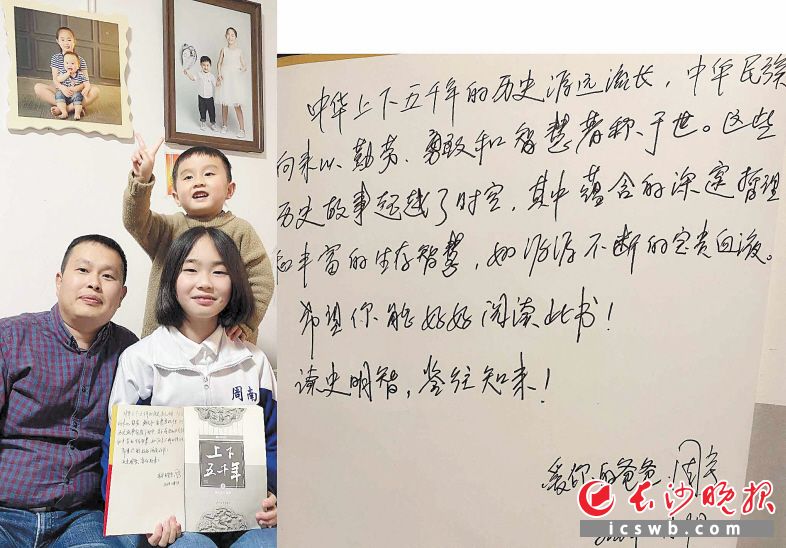 中华上下五千年的历史源远流长，中华民族
向来以勤劳、勇敢和智慧著称于世。这些
历史故事超越了时空，其中蕴含的深邃哲理
和丰富的生存智慧，如源源不断的宝贵血液。
希望你能好好阅读此书！
读史明智，鉴往知来！
爱你的爸爸
周南
上下
五千年
长沙晚报
icswb.com